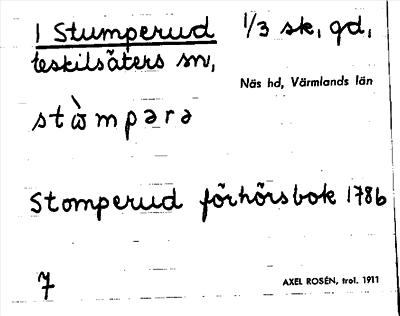 1 Stumperud 1/3 sk, gd,
Eskilsäters sn,
Näs hd, Värmlands län
stὼmpərə
Stomperud förhörsbok 1786
7
AXEL ROSÉN, trol. 1911